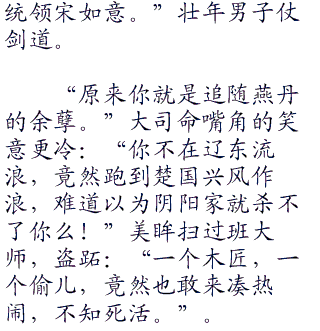 统领宋如意。”壮年男子仗
剑道。
“原来你就是追随燕丹
的余孽。”大司命嘴角的笑
意更冷：“你不在辽东流
浪，竟然跑到楚国兴风作
浪，难道以为阴阳家就杀不
了你么！”美眸扫过班大
师，盗跖：“一个木匠，一
个偷儿，竟然也敢来凑热
闹，不知死活。”。